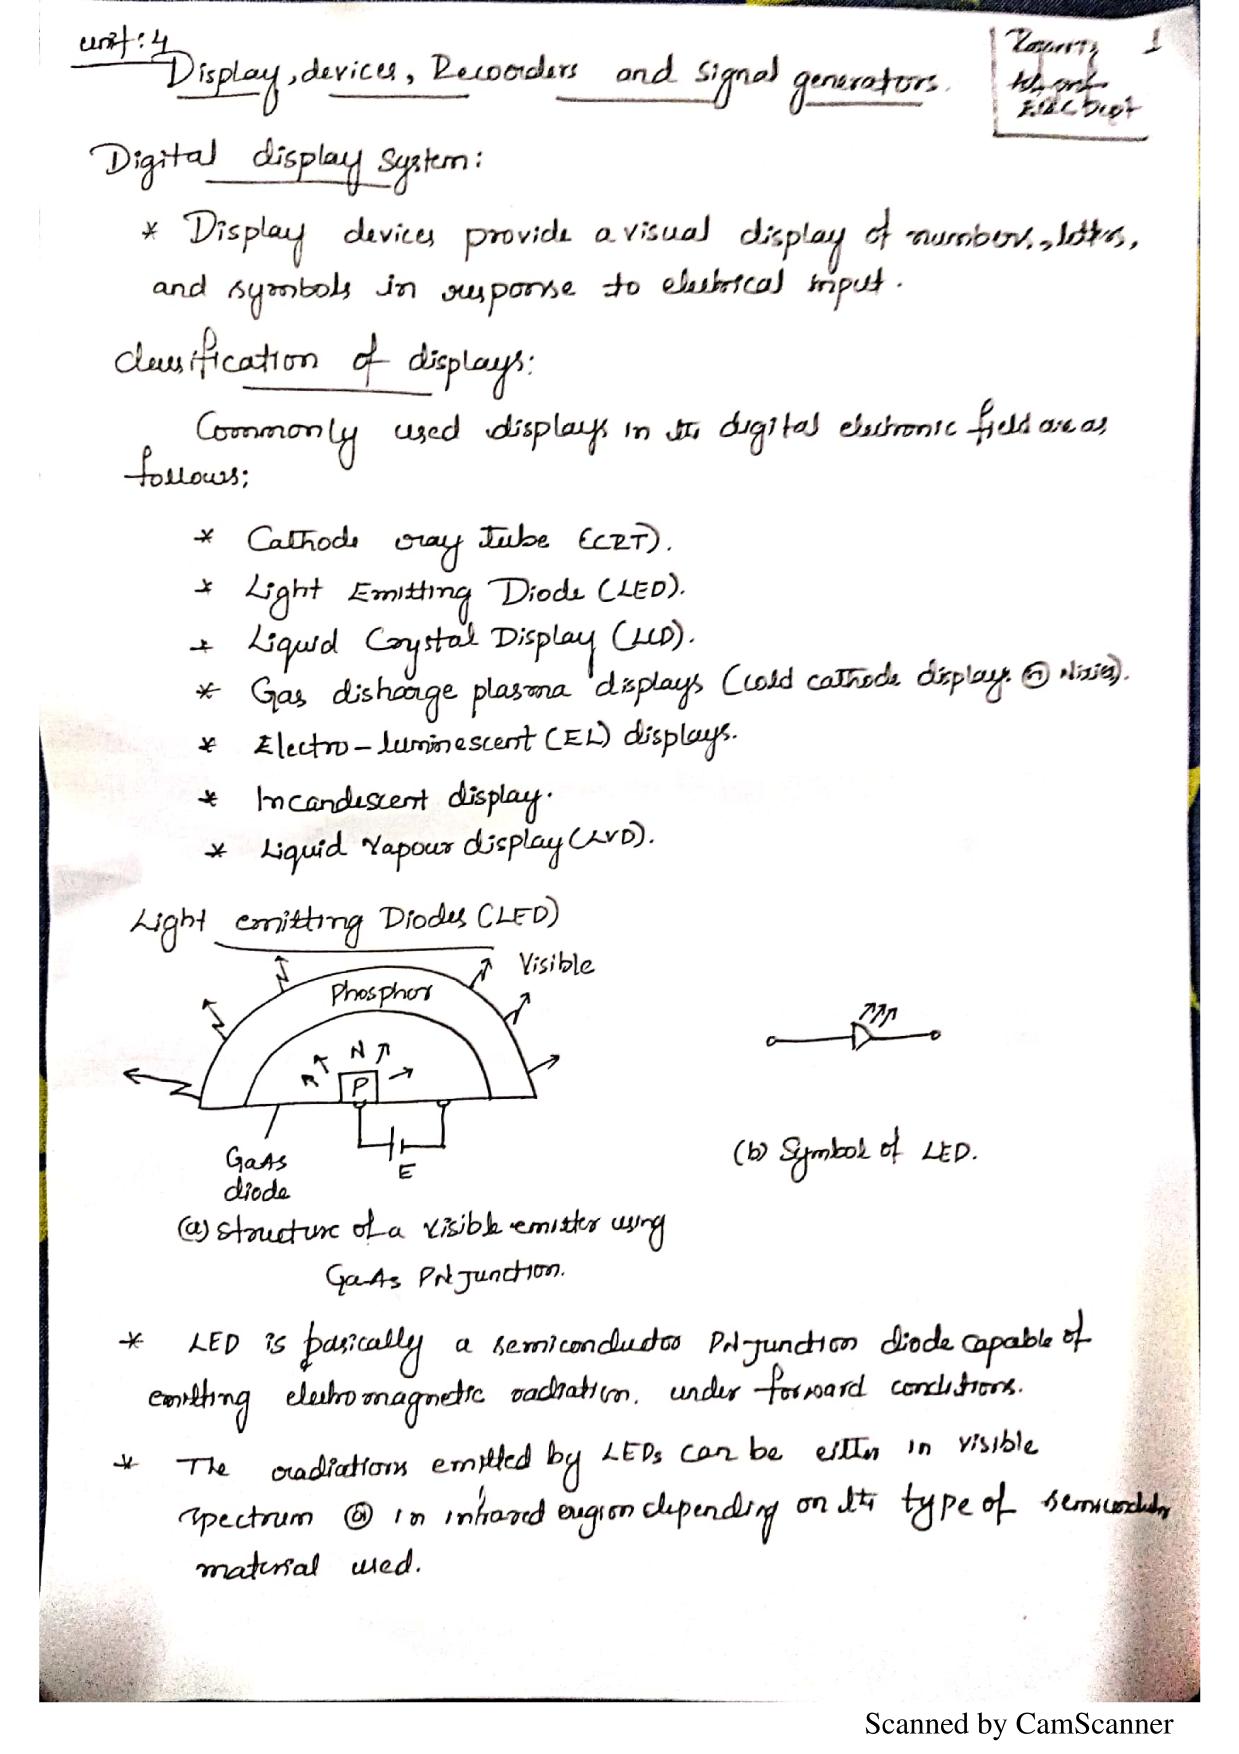 unit: 4
1
Display, devices, Recorders and signal generators.
EEE Dept
Digital display system:
* Display devices provide a visual display of numbers, letters,
and symbols in response to electrical input.
classification of displays:
Commonly used displays in the digital electronic field are as
follows;
* Cathode ray tube (CRT).
* Light Emitting Diode (LED).
* Liquid Crystal Display (LCD).
* Gas disharge plasma displays (cold cathode displays or Nixies).
* Electro-luminescent (EL) displays.
* Incandescent display.
* Liquid Vapour display (LVD).
Light emitting Diodes (LED)
Visible
Phosphor
N
P
GaAs
diode
E
(b) Symbol of LED.
(a) Structure of a visible emitter using
GaAs PN junction.
* LED is basically a semiconductor PN-junction diode capable of
emitting electromagnetic radiation, under forward conditions.
* The radiations emitted by LEDs can be either in visible
spectrum or in infrared region depending on the type of semiconductor
material used.
Scanned by CamScanner